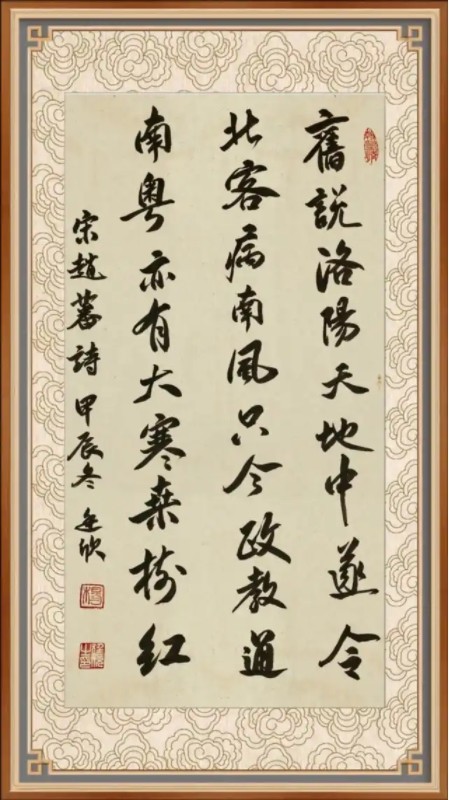 舊說洛陽天地中遂令
北客病南風只今政教通
南粵亦有大寒桑樹紅
宋趙蕃詩甲辰冬